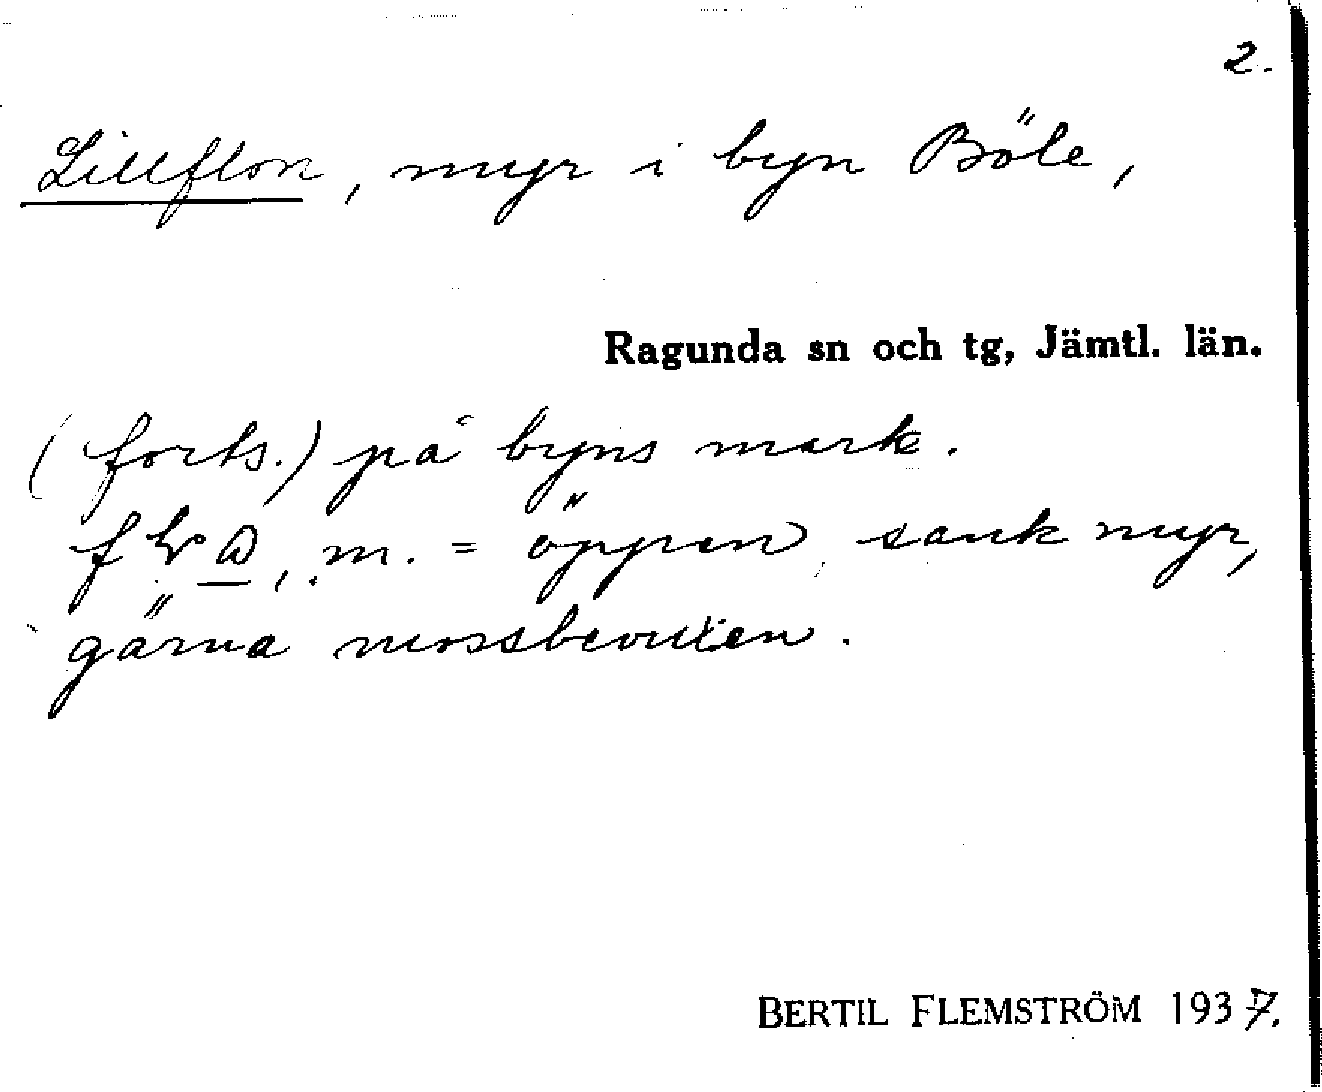 2.
Lillflon, myr i byn Böle,
Ragunda sn och tg, Jämtl. län.
(forts.) på byns mark.
m. = öppen, sank myr,
gärna mossbevuxen.
BERTIL FLEMSTRÖM 1937.